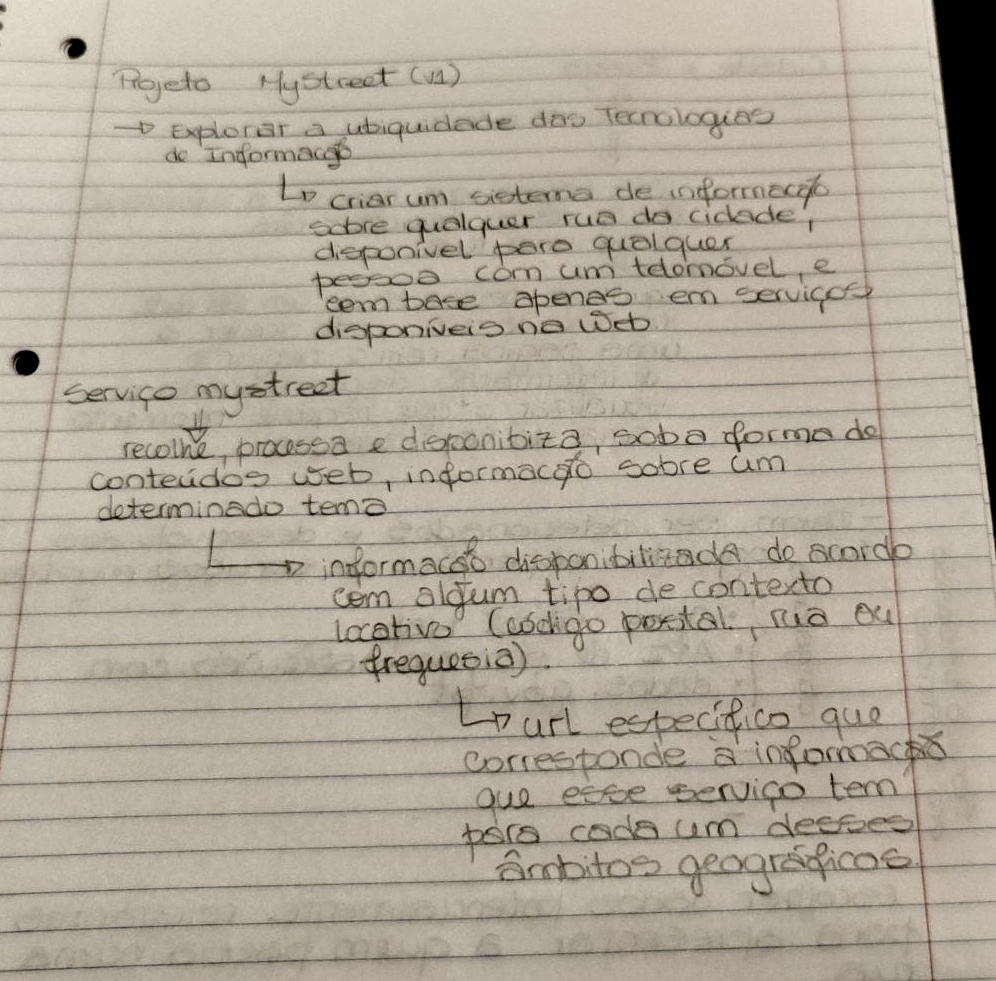 Projeto MyStreet (v1)
→ Explorar a ubiquidade das Tecnologias
de Informação
↳ criar um sistema de informação
sobre qualquer rua da cidade,
disponível para qualquer
pessoa com um telemóvel, e
com base apenas em serviços
disponíveis na Web
Serviço mystreet
⇓
recolhe, processa e disponibiza, sob a forma de
conteúdos web, informação sobre um
determinado tema
↳ informação disponibilizada de acordo
com algum tipo de contexto
locativo (código postal, rua ou
freguesia).
↳ url específico que
corresponde à informação
que esse serviço tem
para cada um desses
âmbitos geográficos.